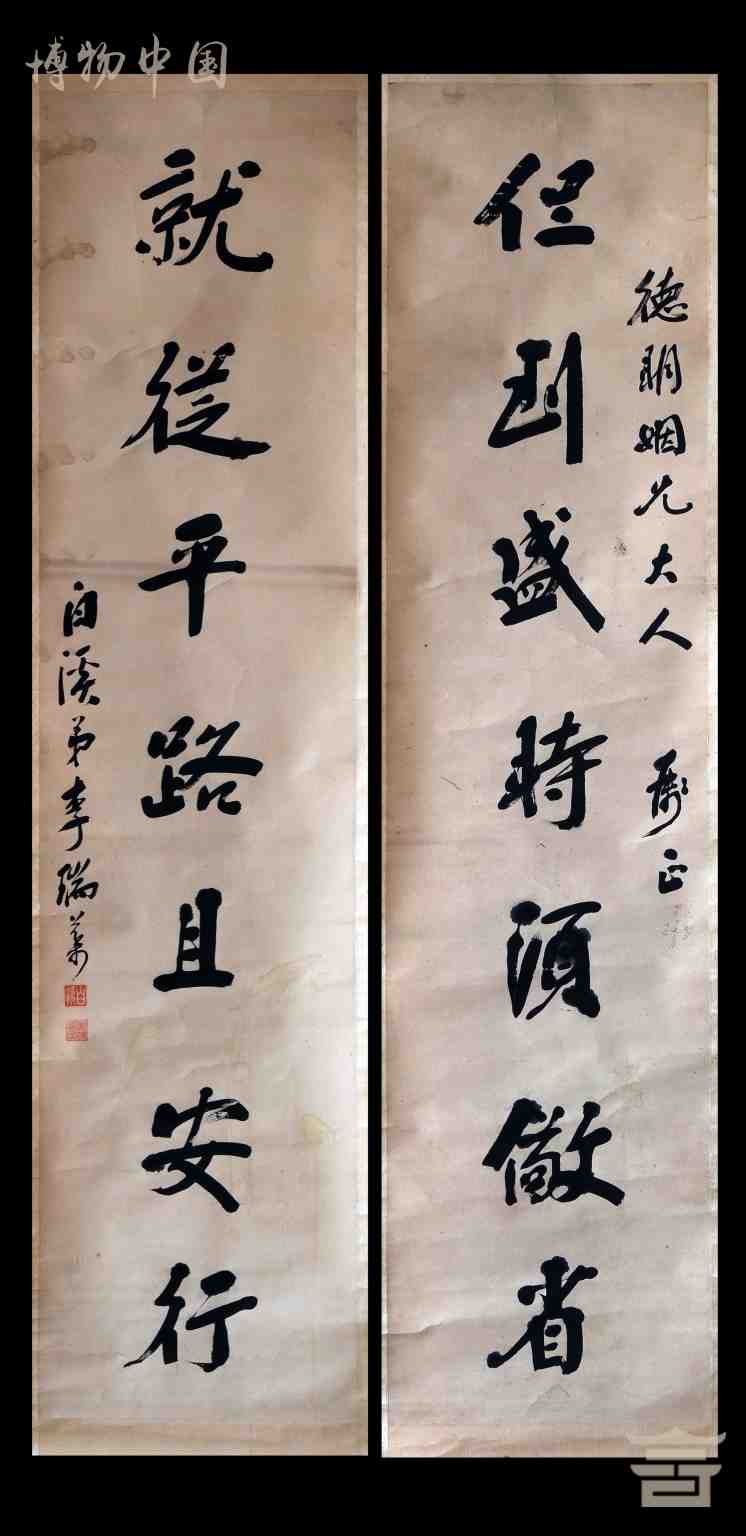 博物中国
德明姻兄大人 雅正
但到盛時須儆省
就從平路且安行
白溪弟李瑞